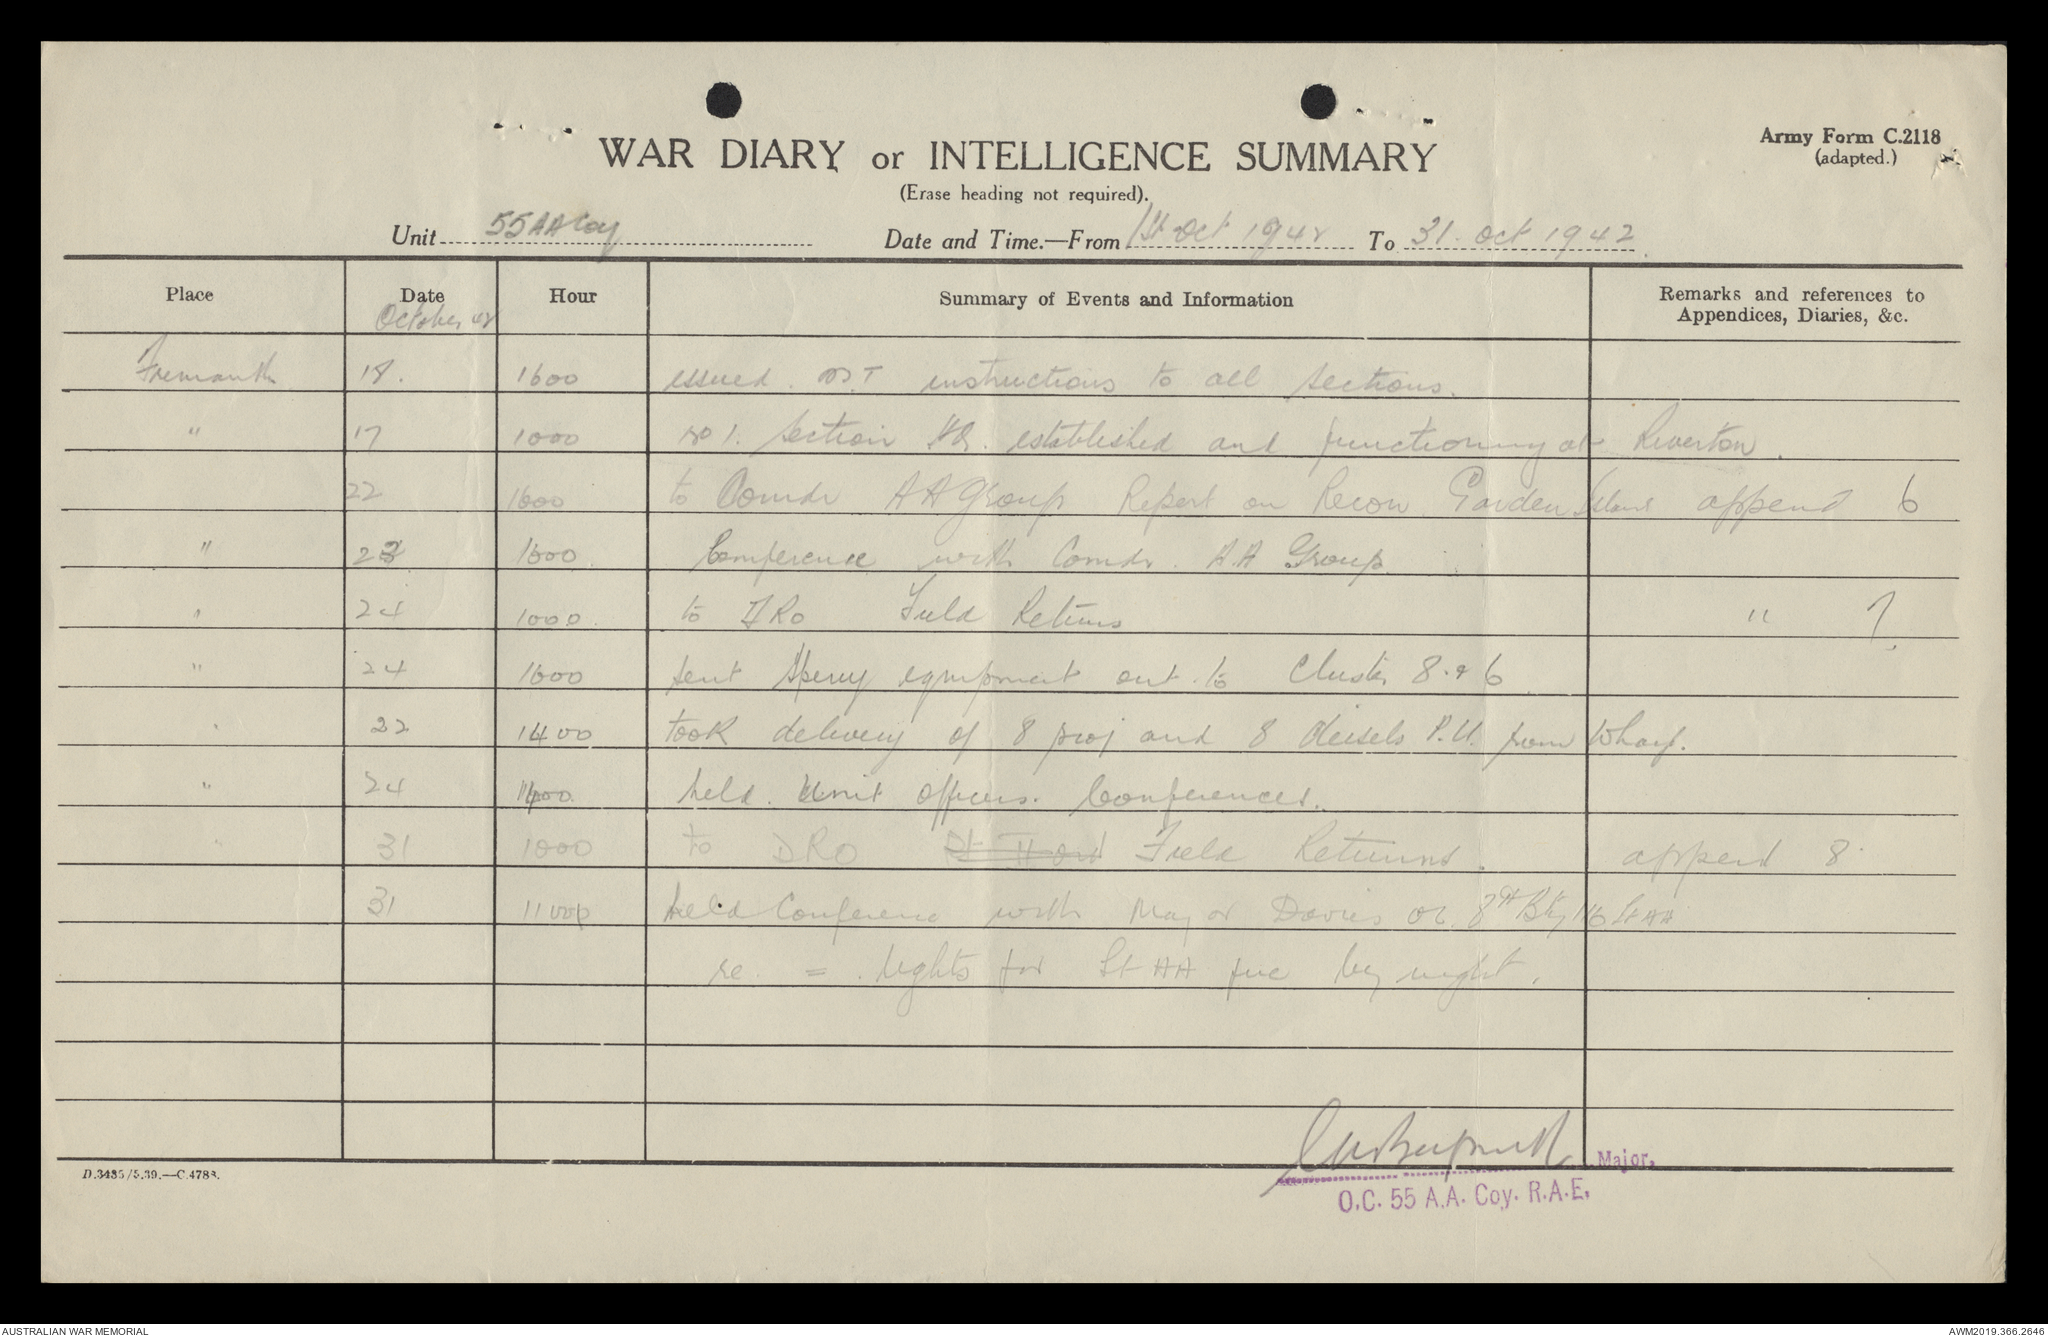 WAR DIARY or INTELLIGENCE SUMMARY
Army Form C.2118
(adapted.)
(Erase heading not required).
Unit 55 AA Coy Date and Time.—From 1st Oct 1942 To 31. Oct 1942
Place Date Hour Summary of Events and Information Remarks and references to Appendices, Diaries, &c.
October 42
Fremantle 18. 1600 issued. M.T instructions to all sections.
" 17 1000 No 1. Section HQ. established and functioning at Riverton.
22 1600 to Comdr AA Group Report on Recon Garden Island append 6
" 23 1600 Conference with Comdr. A.A Group
" 24 1000 to DRO Field Returns " 7.
" 24 1600 sent Sperry equipment out to Cluster 8 & 6
" 22 1400 took delivery of 8 proj and 8 diesels P.U. from Wharf.
" 24 held Unit officers. Conferences.
" 31 1000 to DRO Field Returns. append 8
31 1100 held Conference with Major Davies OC. 8th Bty 116 Lt AA
re = lights for Lt AA fire by night.
Major,
O.C. 55 A.A. Coy. R.A.E.
D.3435/5.39.—C.4783.
AUSTRALIAN WAR MEMORIAL
AWM2019.366.2646